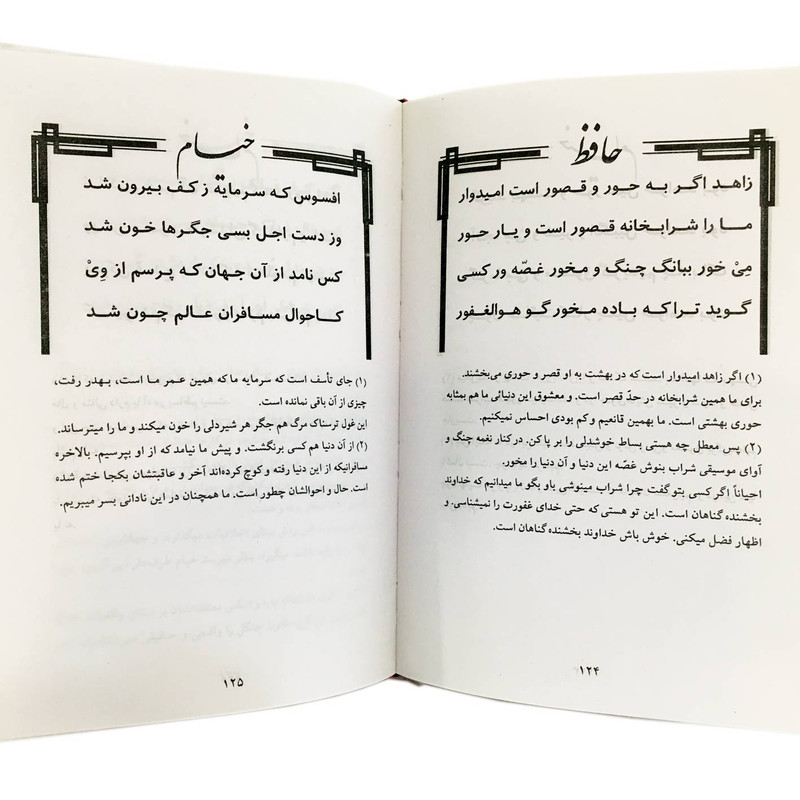 حافظ
زاهد اگر به حور و قصور است امیدوار
ما را شرابخانه قصور است و یار حور
مِیْ خور ببانگ چنگ و مخور غصّه ور کسی
گوید ترا که باده مخور گو هوالغفور
(۱) اگر زاهد امیدوار است که در بهشت به او قصر و حوری می‌بخشند.
برای ما همین شرابخانه در حدّ قصر است. و معشوق این دنیائی ما هم بمثابه
حوری بهشتی است. ما بهمین قانعیم و کم بودی احساس نمیکنیم.
(۲) پس معطل چه هستی بساط خوشدلی را بر پا کن. در کنار نغمه چنگ و
آوای موسیقی شراب بنوش غصّه این دنیا و آن دنیا را مخور.
احیاناً اگر کسی بتو گفت چرا شراب مینوشی باو بگو ما میدانیم که خداوند
بخشنده گناهان است. این تو هستی که حتی خدای غفورت را نمیشناسی. و
اظهار فضل میکنی. خوش باش خداوند بخشنده گناهان است.
۱۲۴
خیام
افسوس که سرمایهٔ ز کف بیرون شد
وز دست اجل بسی جگرها خون شد
کس نامد از آن جهان که پرسم از ویْ
کاحوال مسافران عالم چون شد
(۱) جای تأسف است که سرمایه ما که همین عمر ما است، بهدر رفت،
چیزی از آن باقی نمانده است.
این غول ترسناک مرگ هم جگر هر شیردلی را خون میکند و ما را میترساند.
(۲) از آن دنیا هم کسی برنگشت. و پیش ما نیامد که از او بپرسیم. بالاخره
مسافرانیکه از این دنیا رفته و کوچ کرده‌اند آخر و عاقبتشان بکجا ختم شده
است. حال و احوالشان چطور است. ما همچنان در این نادانی بسر میبریم.
۱۲۵